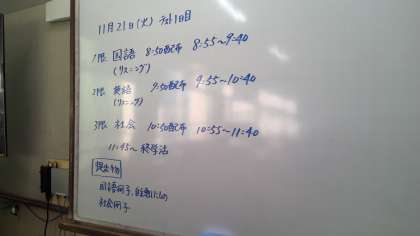 11月21日(火) テスト1日目
1限 国語 8:50配布 8:55~9:40
(リスニング)
2限 英語 9:50配布 9:55~10:40
(リスニング)
3限 社会 10:50配布 10:55~11:40
11:45~ 終学活
提出物
国語冊子,
社会冊子